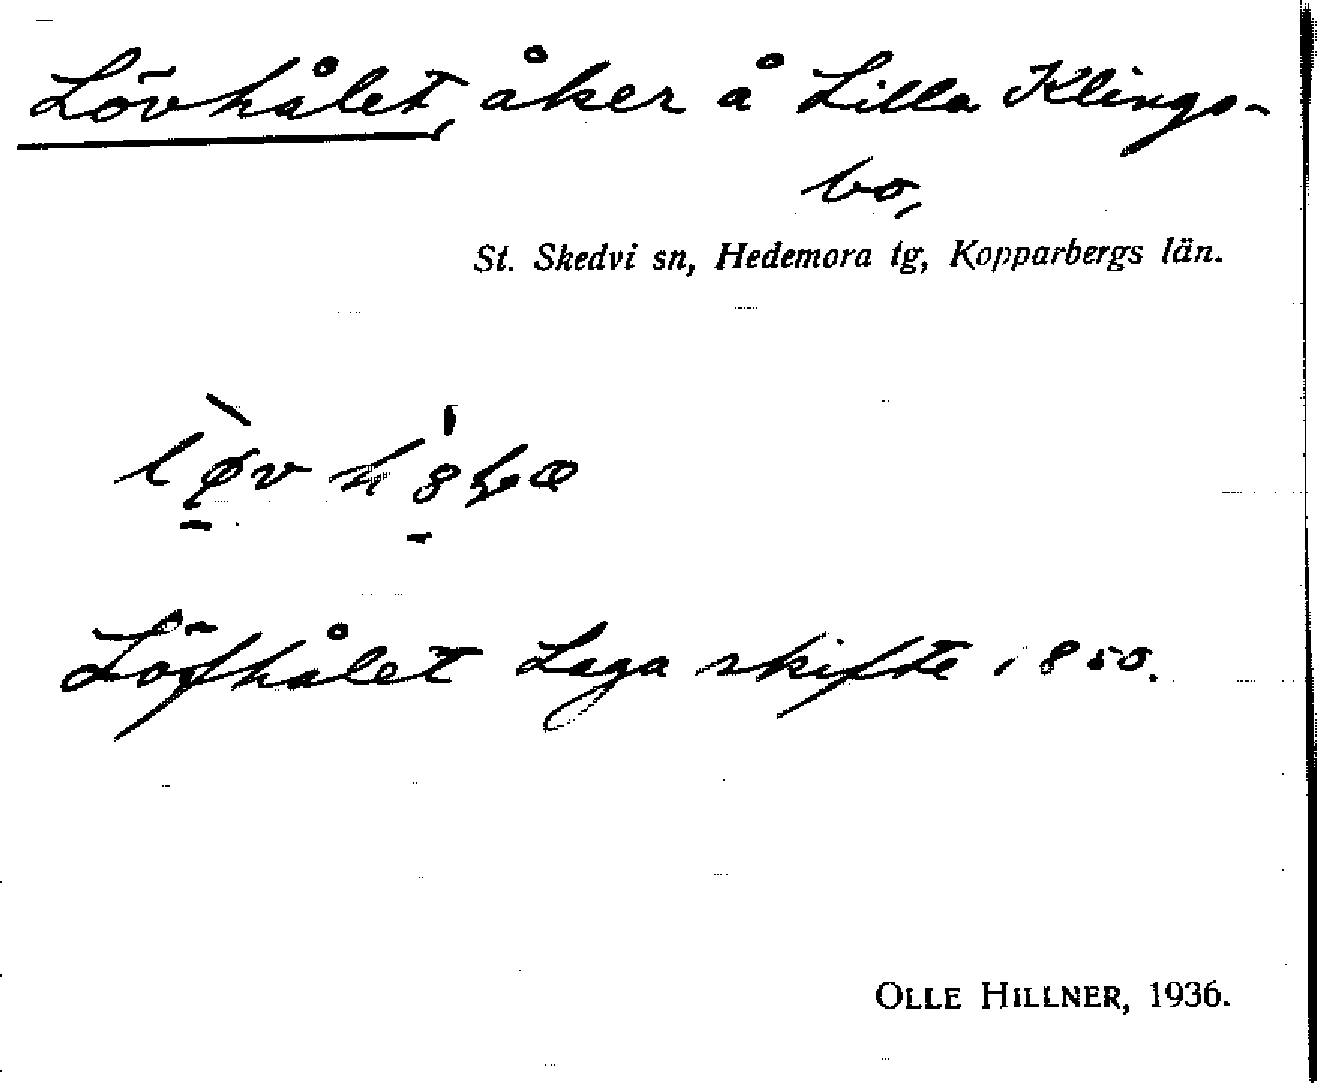 Lövhålet, åker å Lilla Klings-
bo,
St. Skedvi sn, Hedemora tg, Kopparbergs län.
Löfhålet Laga skifte 1850.
OLLE HILLNER, 1936.